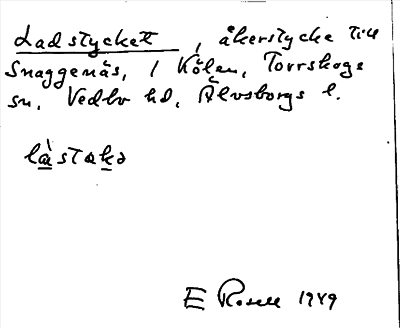 Ladstycket, åkerstycke till
Snaggenäs, / Kölen, Torrskogs
sn, Vedbo hd, Älvsborgs l.
là̱staḵə
E Rosell 1949